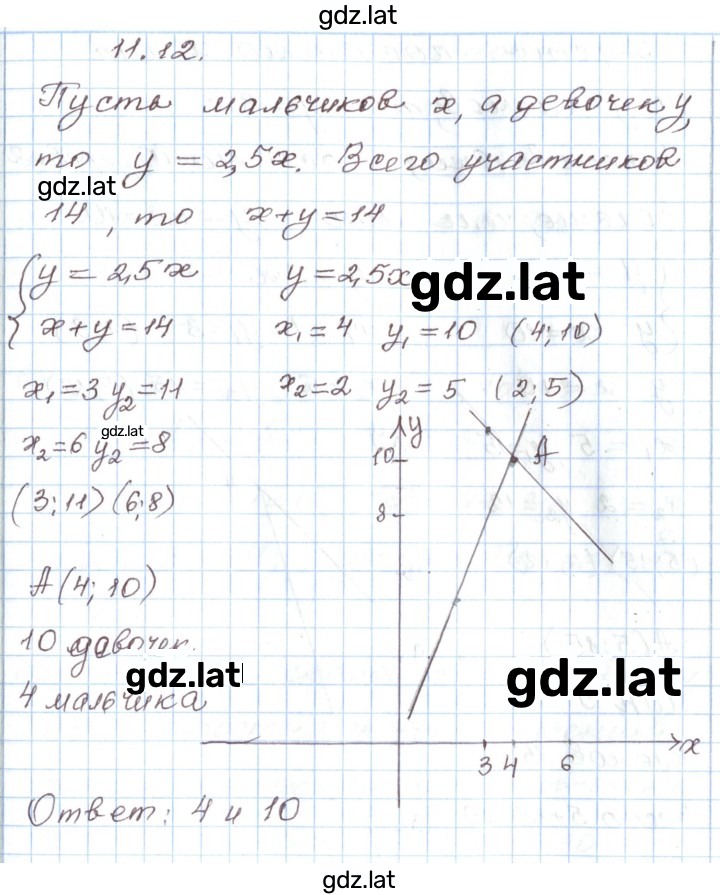 gdz.lat
11.12.
Пусть мальчиков x, а девочек y,
то y = 2,5x. Всего участников
gdz.lat
14, то x+y=14
{y = 2,5x y=2,5x
gdz.lat
x+y=14 x₁=4 y₁=10 (4;10)
x₁=3 y₂=11 x₂=2 y₂=5 (2;5)
gdz.lat
x₂=6 y₂=8
(3;11) (6;8)
y
10 A
8
A(4; 10)
10 девочек.
gdz.lat
gdz.lat
4 мальчика
x
3 4 6
Ответ: 4 и 10
gdz.lat